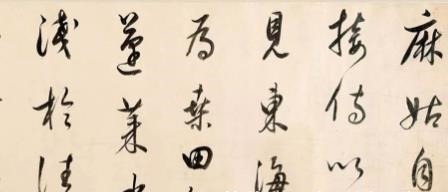 麻姑自
接侍以
見東海
為桑田
蓬萊水
淺於往